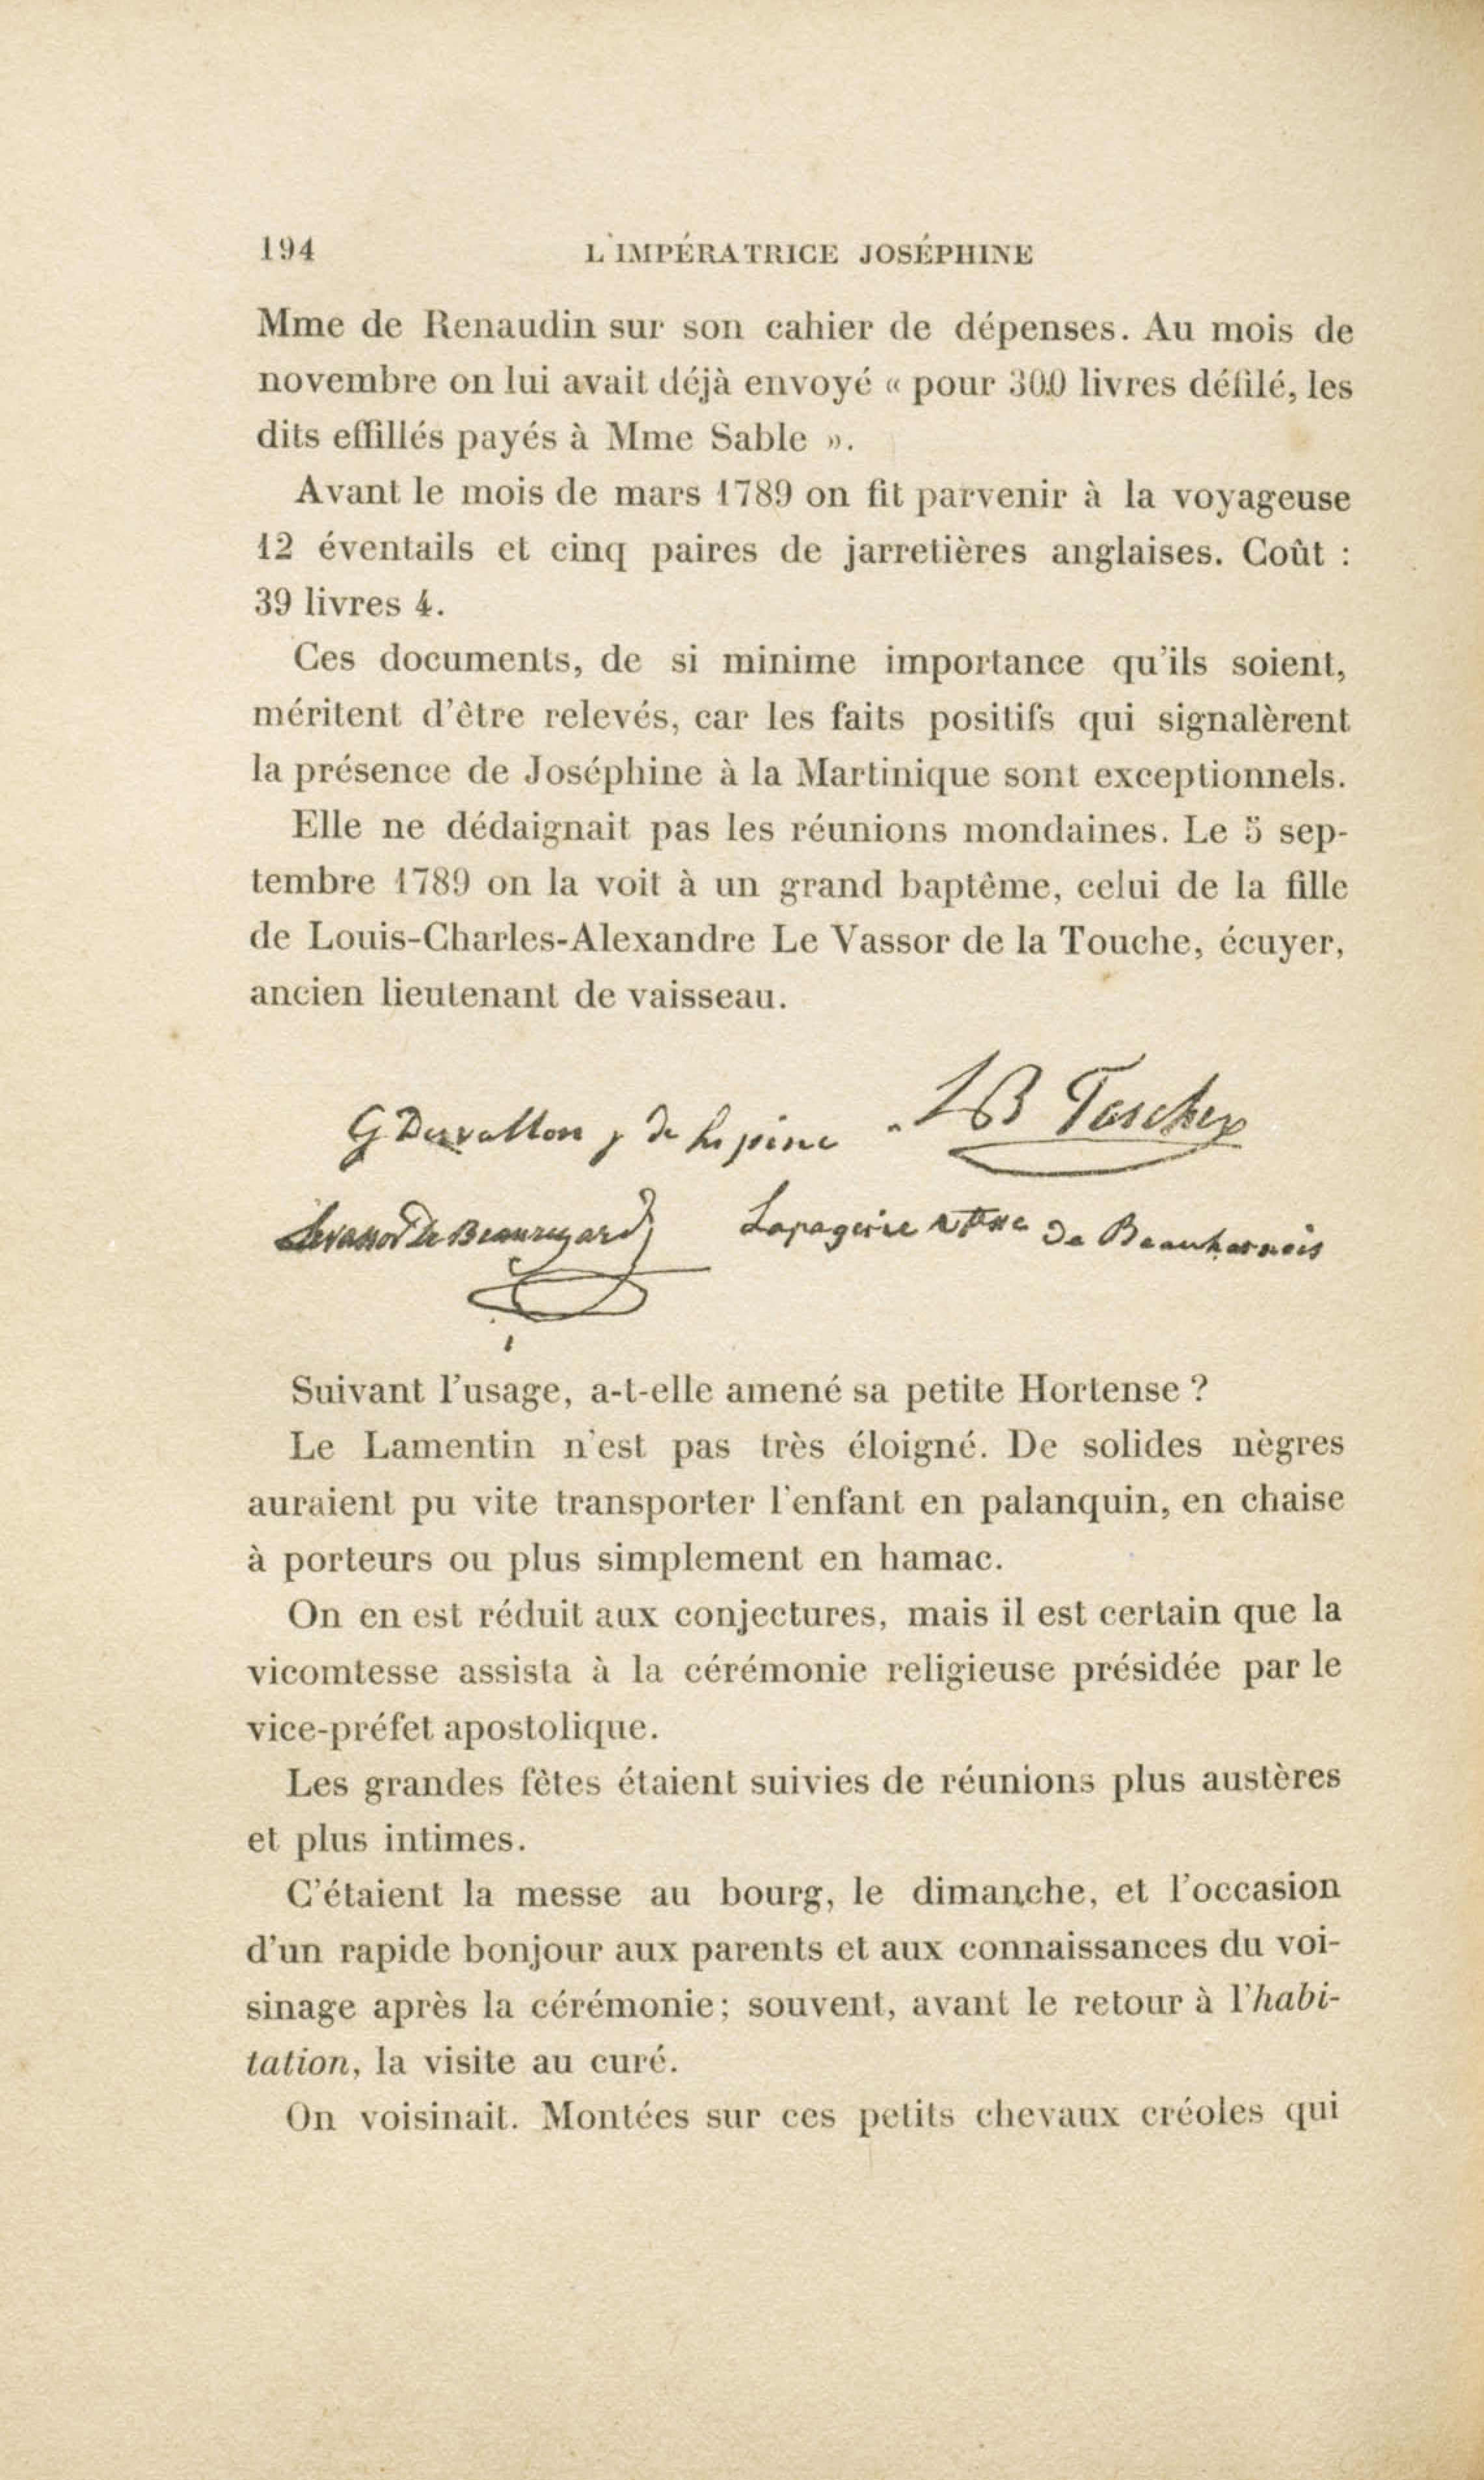 194 L'IMPÉRATRICE JOSÉPHINE
Mme de Renaudin sur son cahier de dépenses. Au mois de
novembre on lui avait déjà envoyé « pour 300 livres défilé, les
dits effillés payés à Mme Sable ».
Avant le mois de mars 1789 on fit parvenir à la voyageuse
12 éventails et cinq paires de jarretières anglaises. Coût :
39 livres 4.
Ces documents, de si minime importance qu'ils soient,
méritent d'être relevés, car les faits positifs qui signalèrent
la présence de Joséphine à la Martinique sont exceptionnels.
Elle ne dédaignait pas les réunions mondaines. Le 5 sep-
tembre 1789 on la voit à un grand baptême, celui de la fille
de Louis-Charles-Alexandre Le Vassor de la Touche, écuyer,
ancien lieutenant de vaisseau.
G Duvallon de Lepine LB Tascher
Levassor De Beauregard Lapagerie De Beauharnois
Suivant l'usage, a-t-elle amené sa petite Hortense ?
Le Lamentin n'est pas très éloigné. De solides nègres
auraient pu vite transporter l'enfant en palanquin, en chaise
à porteurs ou plus simplement en hamac.
On en est réduit aux conjectures, mais il est certain que la
vicomtesse assista à la cérémonie religieuse présidée par le
vice-préfet apostolique.
Les grandes fêtes étaient suivies de réunions plus austères
et plus intimes.
C'étaient la messe au bourg, le dimanche, et l'occasion
d'un rapide bonjour aux parents et aux connaissances du voi-
sinage après la cérémonie; souvent, avant le retour à l'habi-
tation, la visite au curé.
On voisinait. Montées sur ces petits chevaux créoles qui